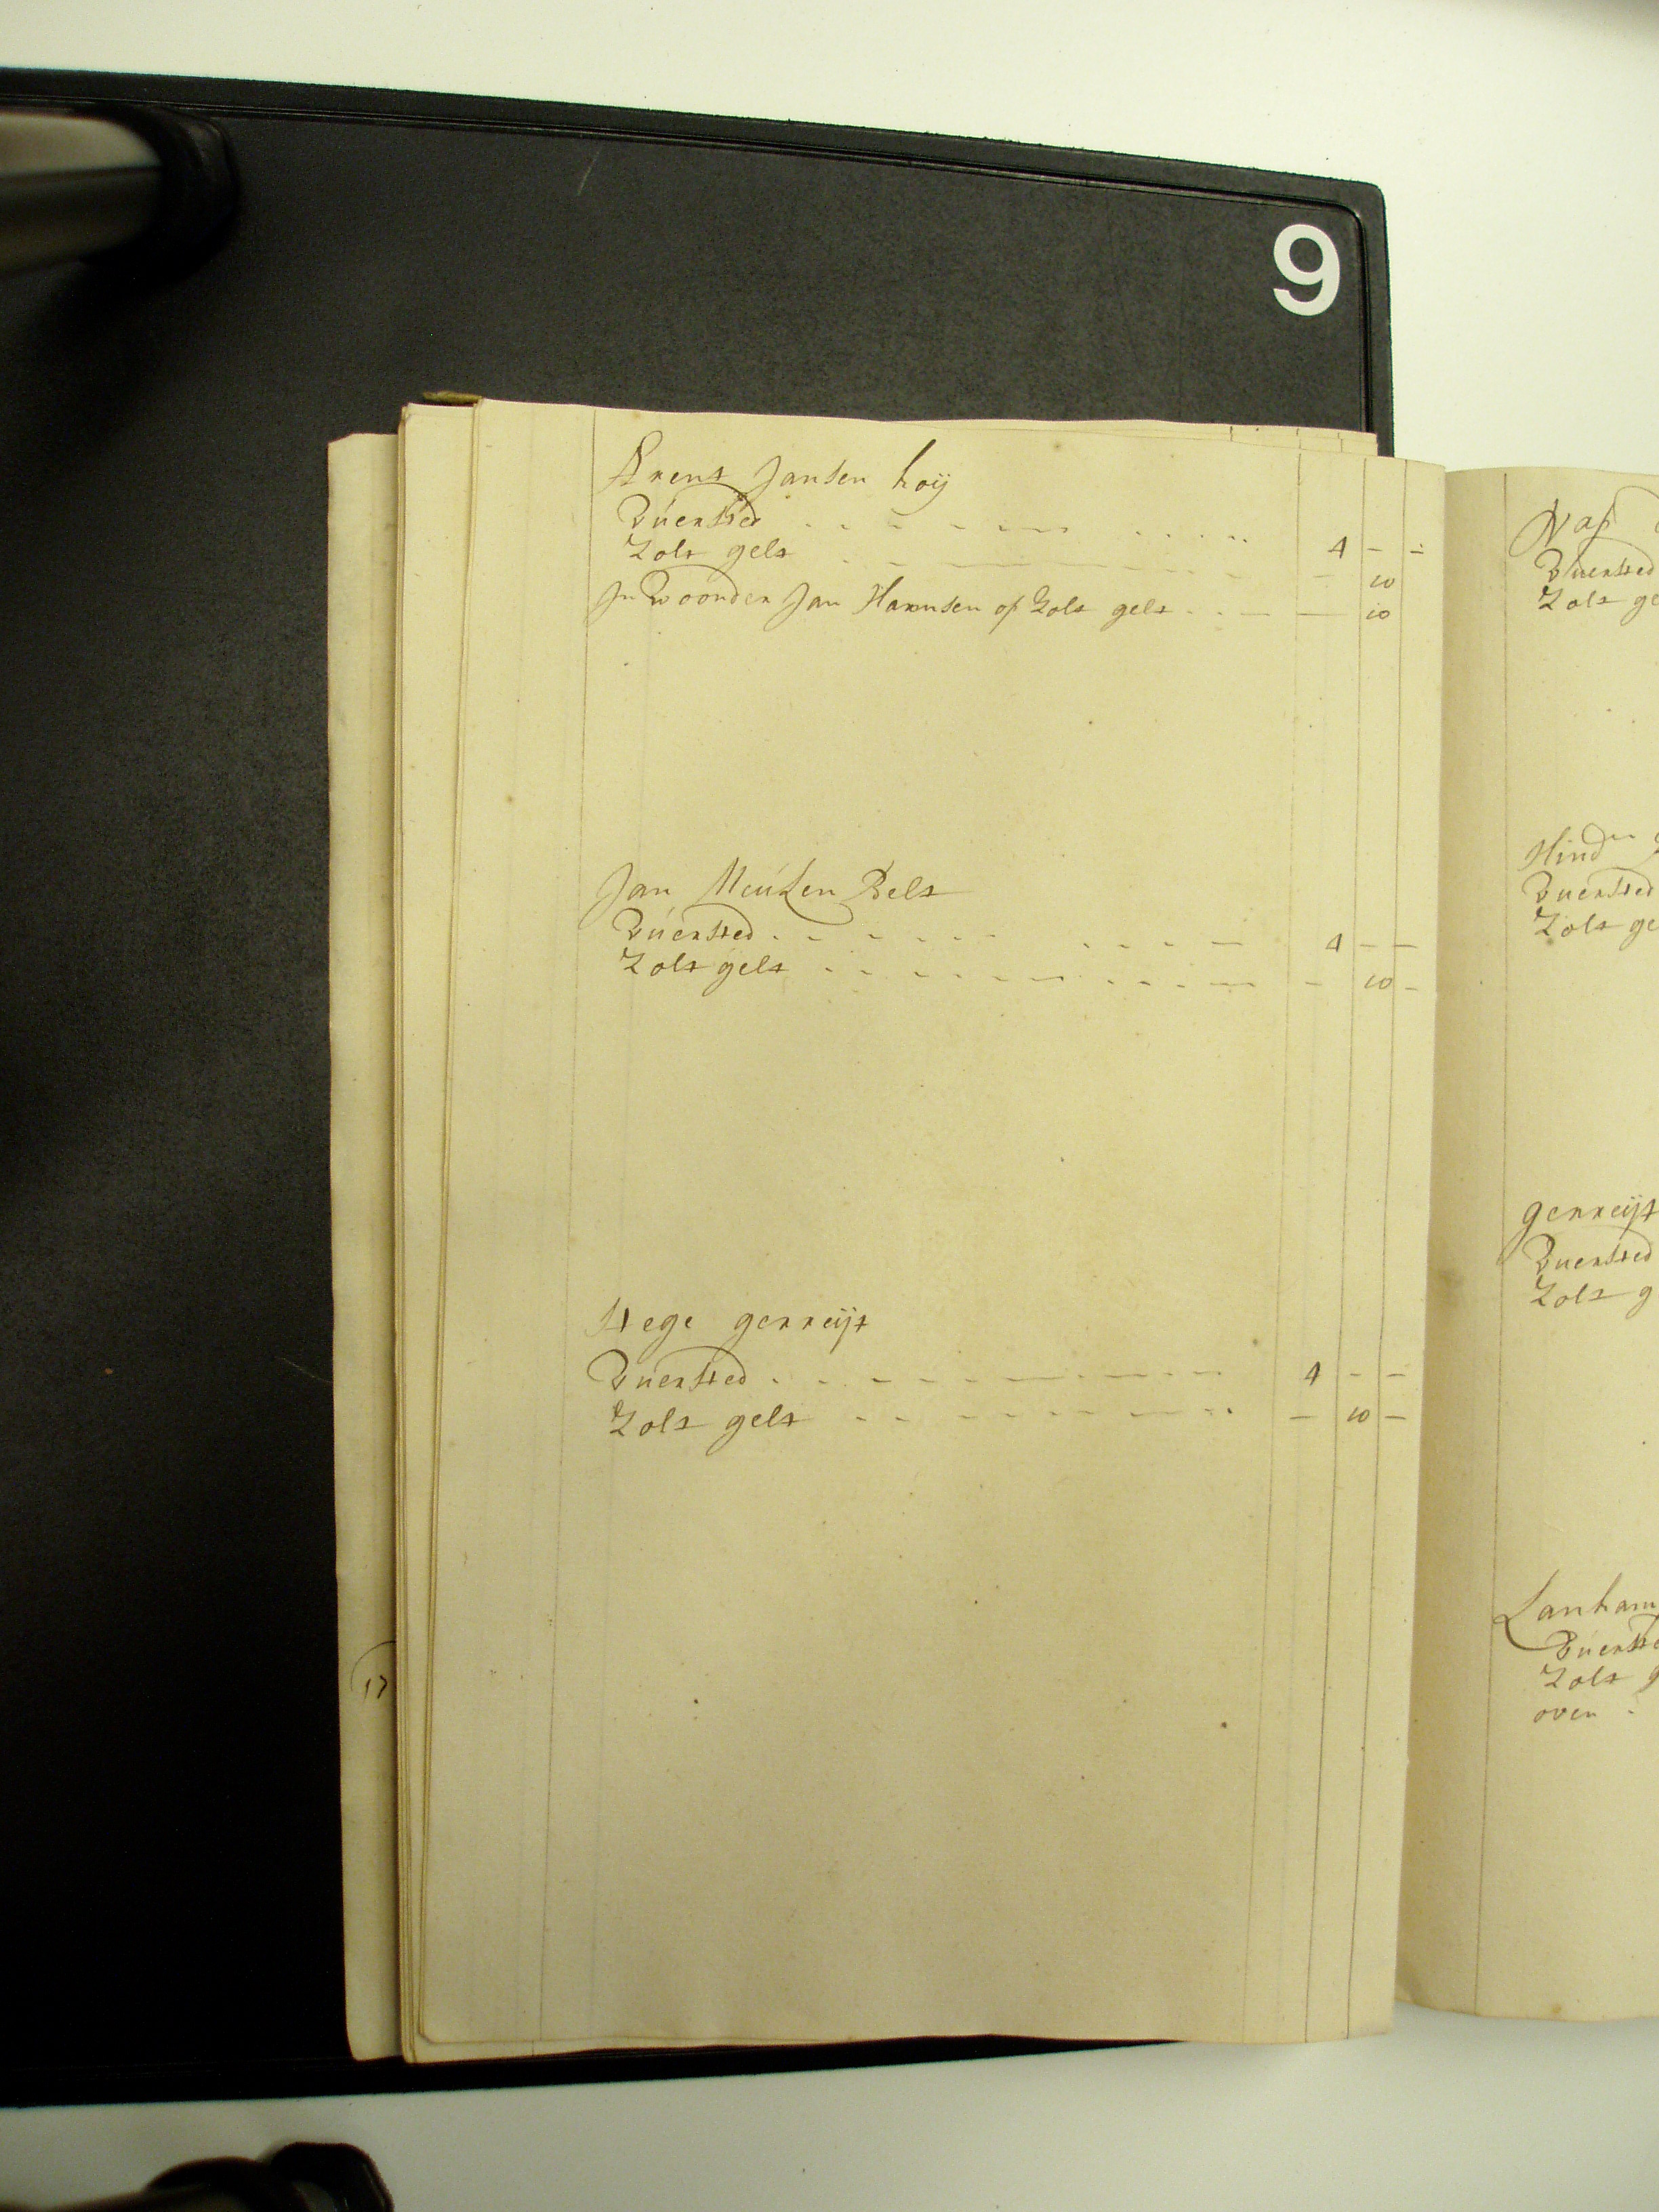 9
Arent Jansen hoij
Vuersted 4 - -
Zolt gelt - 10
In Woonder Jan Harmsen op Zolt gelt - 10
Jan Meuken Belt
Vuersted 4 - -
Zolt gelt - 10 -
Stege gerreijt
Vuersted 4 - -
Zolt gelt - 10 -
17
Vuersted
Zolt ge
Hindr
Vuersted
Zolt ge
gerreijt
Vuersted
Zolt g
Lanham
Vuerste
Zolt g
oven